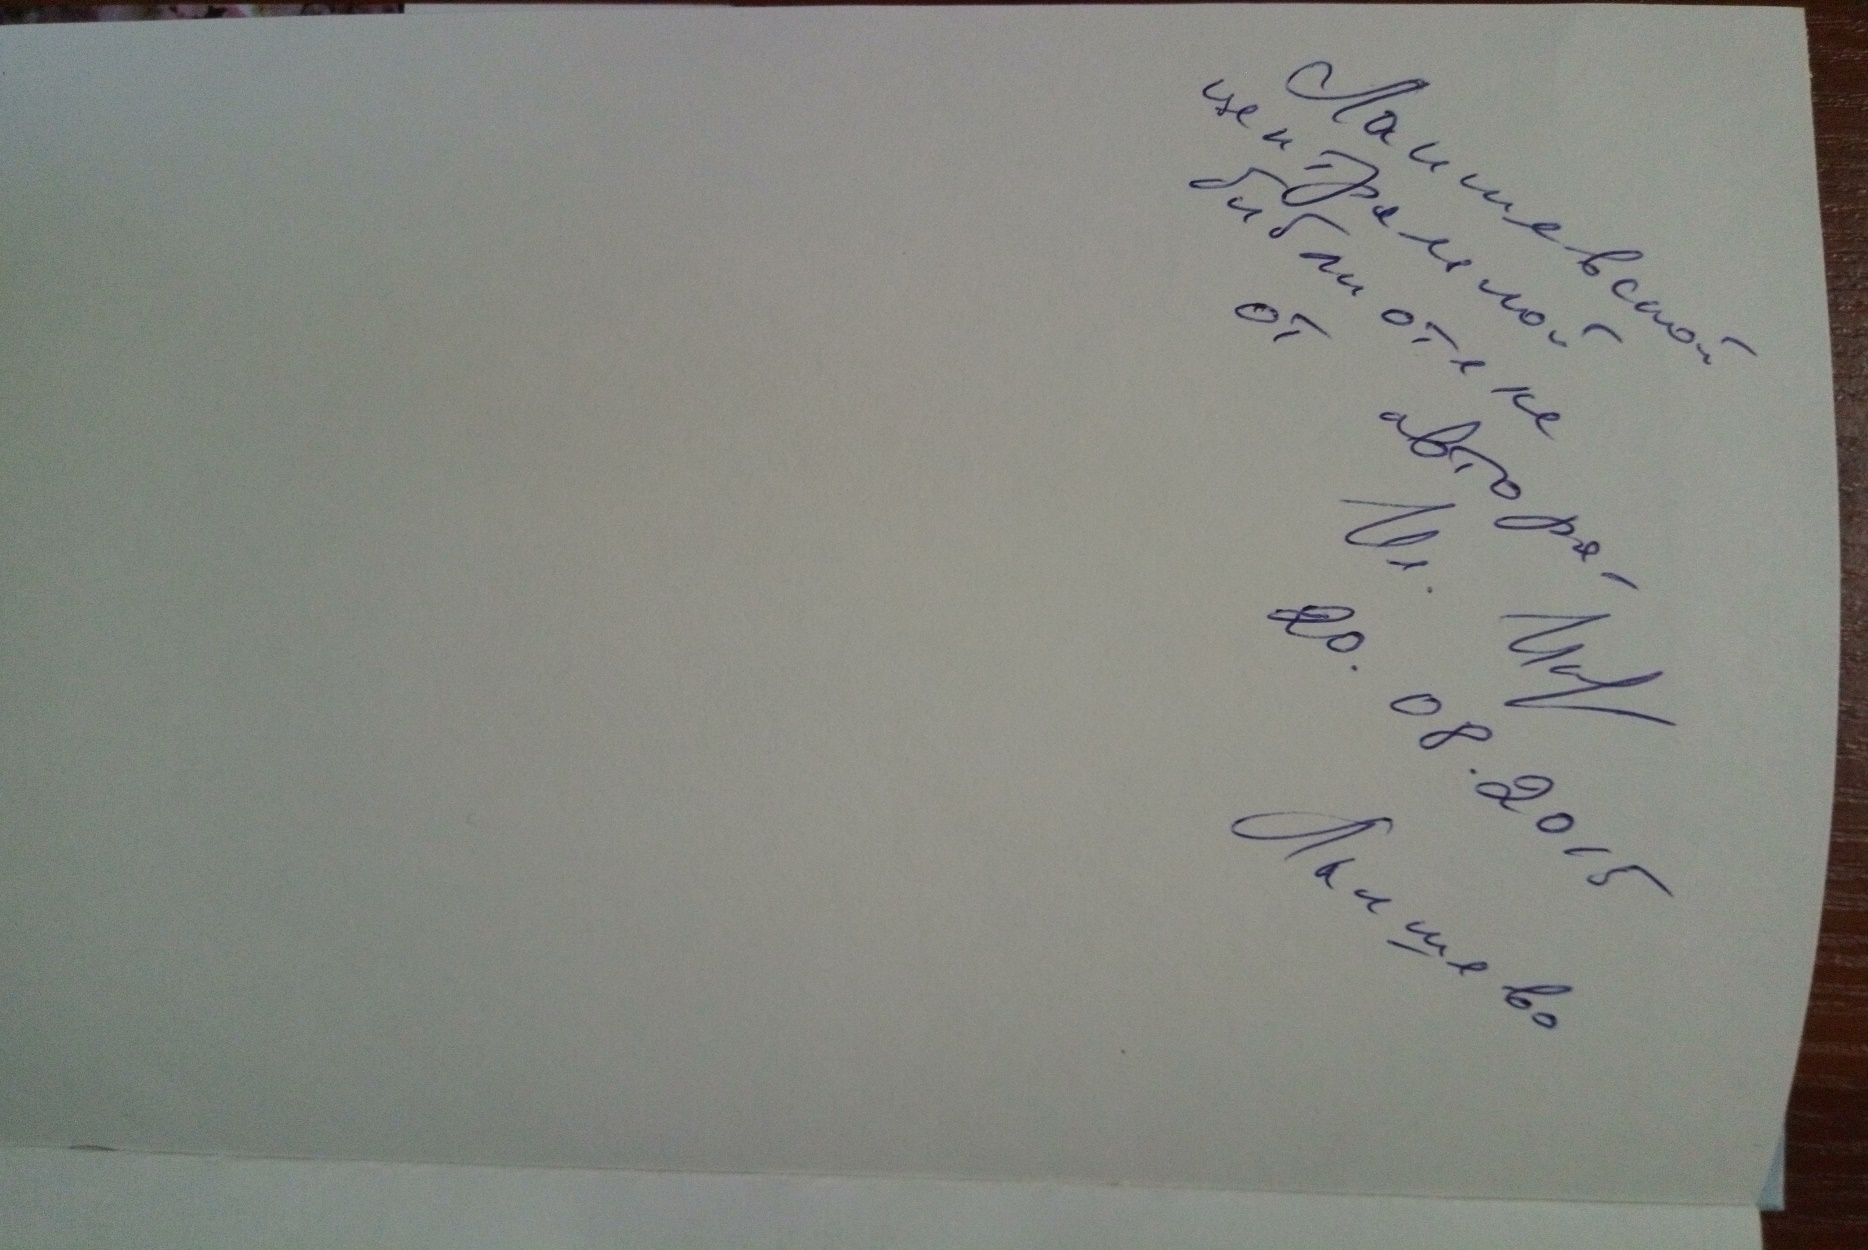 Лаишевской
центральной
библиотеке
от автора-
20.08.2015
Лаишево